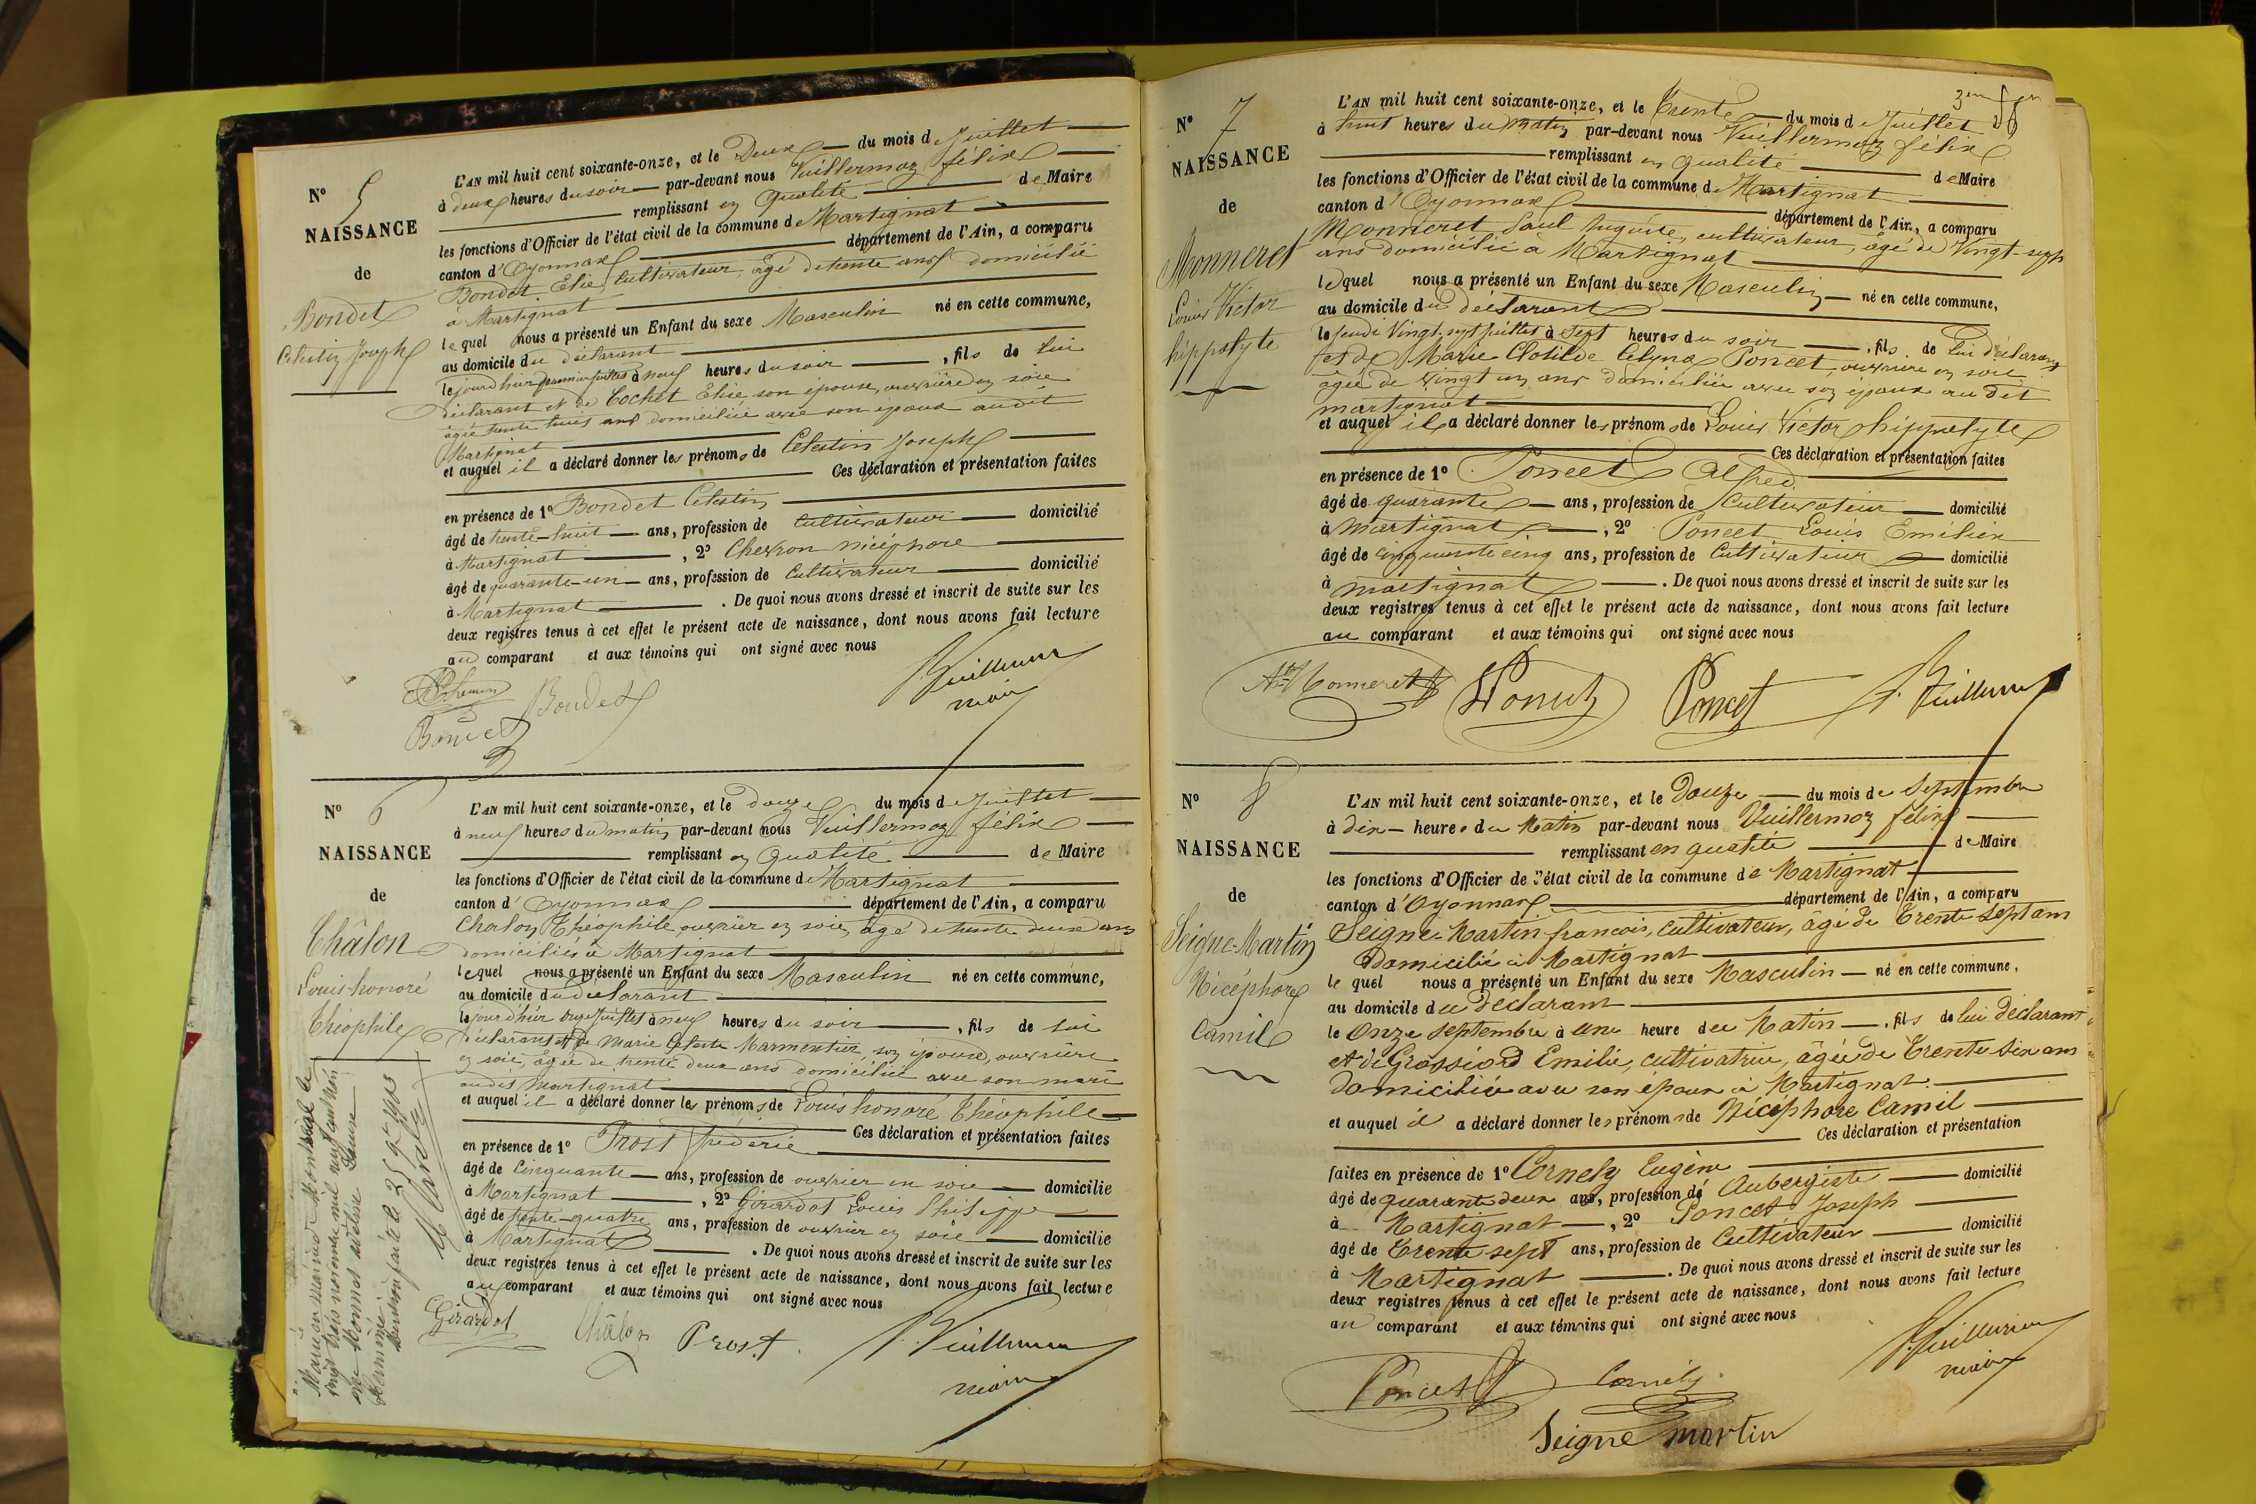 N° 5
NAISSANCE
de
Bondet
Célestin Joseph
L'AN mil huit cent soixante-onze, et le Deux du mois de Juillet
à deux heures du soir par-devant nous Vuillermoz félix
remplissant en qualité de Maire
les fonctions d'Officier de l'état civil de la commune de Martignat
canton d'Oyonnax département de l'Ain, a comparu
Bondet Elie, Cultivateur, âgé de trente ans domicilié
à Martignat
lequel nous a présenté un Enfant du sexe Masculin né en cette commune,
au domicile du déclarant
le jourd'hier premier juillet à neuf heures du soir, fils de lui
déclarant et de Cochet Elise son épouse, ouvrière en soie
âgée trente trois ans domiciliée avec son époux audit
Martignat
et auquel il a déclaré donner les prénoms de Célestin Joseph
Ces déclaration et présentation faites
en présence de 1° Bondet Célestin
âgé de trente-huit ans, profession de cultivateur domicilié
à Martignat, 2° Chevron nicéphore
âgé de quarante-un ans, profession de Cultivateur domicilié
à Martignat. De quoi nous avons dressé et inscrit de suite sur les
deux registres tenus à cet effet le présent acte de naissance, dont nous avons fait lecture
au comparant et aux témoins qui ont signé avec nous
Bondet
Vuillermoz
maire
N° 6
NAISSANCE
de
Châlon
Louis honoré
Théophile
L'AN mil huit cent soixante-onze, et le douze du mois de Juillet
à neuf heures du matin par-devant nous Vuillermoz félix
remplissant en qualité de Maire
les fonctions d'Officier de l'état civil de la commune de Martignat
canton d'Oyonnax département de l'Ain, a comparu
Chalon Théophile ouvrier en soie, âgé de trente deux ans
domicilié à Martignat
lequel nous a présenté un Enfant du sexe Masculin né en cette commune,
au domicile du déclarant
le jourd'hier onze Juillet à neuf heures du soir, fils de lui
déclarant et de Marie Céleste Marmentier, son épouse, ouvrière
en soie, âgée de trente deux ans domiciliée avec son mari
audit Martignat
et auquel il a déclaré donner les prénoms de Louis honoré Théophile
Ces déclaration et présentation faites
en présence de 1° Prost frédéric
âgé de Cinquante ans, profession de ouvrier en soie domicilié
à Martignat, 2° Girardot Louis Philippe
âgé de trente-quatre ans, profession de ouvrier en soie domicilié
à Martignat. De quoi nous avons dressé et inscrit de suite sur les
deux registres tenus à cet effet le présent acte de naissance, dont nous avons fait lecture
au comparant et aux témoins qui ont signé avec nous
Girardot Châlon Prost Vuillermoz
maire
N° 7
NAISSANCE
de
Monneret
Louis Victor
hippolyte
L'AN mil huit cent soixante-onze, et le Trente du mois de Juillet
à huit heures du Matin par-devant nous Vuillermoz félix
remplissant en qualité de Maire
les fonctions d'Officier de l'état civil de la commune de Martignat
canton d'Oyonnax département de l'Ain, a comparu
Monneret Paul Auguste, cultivateur, âgé de Vingt-sept
ans domicilié à Martignat
lequel nous a présenté un Enfant du sexe Masculin né en cette commune,
au domicile du déclarant
le jeudi Vingt-sept juillet à sept heures du soir, fils de lui déclarant
et de Marie Clotilde Célyna Poncet, ouvrière en soie
âgée de vingt un ans domiciliée avec son époux au dit
martignat
et auquel il a déclaré donner les prénoms de Louis Victor hippolyte
Ces déclaration et présentation faites
en présence de 1° Poncet Alfred
âgé de quarante ans, profession de Cultivateur domicilié
à Martignat, 2° Poncet Louis Emilien
âgé de cinquante cinq ans, profession de Cultivateur domicilié
à martignat. De quoi nous avons dressé et inscrit de suite sur les
deux registres tenus à cet effet le présent acte de naissance, dont nous avons fait lecture
au comparant et aux témoins qui ont signé avec nous
Monneret Poncet Poncet Vuillermoz
N° 8
NAISSANCE
de
Seigne-Martin
Nicéphore
Camil
L'AN mil huit cent soixante-onze, et le Douze du mois de Septembre
à dix heures du Matin par-devant nous Vuillermoz félix
remplissant en qualité de Maire
les fonctions d'Officier de l'état civil de la commune de Martignat
canton d'Oyonnax département de l'Ain, a comparu
Seigne-Martin francois, cultivateur, âgé de Trente sept ans
Domicilié à Martignat
le quel nous a présenté un Enfant du sexe Masculin né en cette commune,
au domicile du déclarant
le Onze Septembre à une heure du Matin, fils de lui déclarant
et de Grossiord Emilie, cultivatrice, âgée de Trente six ans
domiciliée avec son époux à Martignat.
et auquel il a déclaré donner les prénoms de Nicéphore Camil
Ces déclaration et présentation
faites en présence de 1° Cornely Eugène
âgé de quarante deux ans, profession de Aubergiste domicilié
à Martignat, 2° Poncet Joseph
âgé de Trente sept ans, profession de Cultivateur domicilié
à Martignat. De quoi nous avons dressé et inscrit de suite sur les
deux registres tenus à cet effet le présent acte de naissance, dont nous avons fait lecture
au comparant et aux témoins qui ont signé avec nous
Poncet Cornély Vuillermoz
maire
Seigne martin